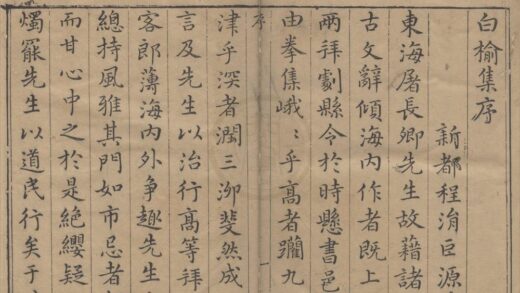 白榆集序
新都程涓巨源
東海屠長卿先生故藉諸
古文辭傾海內作者既上
兩拜劇縣令於時懸書邑
由拳集峨〻乎高者躡九
序 一
津乎深者潤三泖斐然成
言及先生以治行高等拜
客郎薄海內外爭趣先生
總持風雅其門如市忌者
而甘心中之於是絕纓疑
燭罷先生以道民行矣于